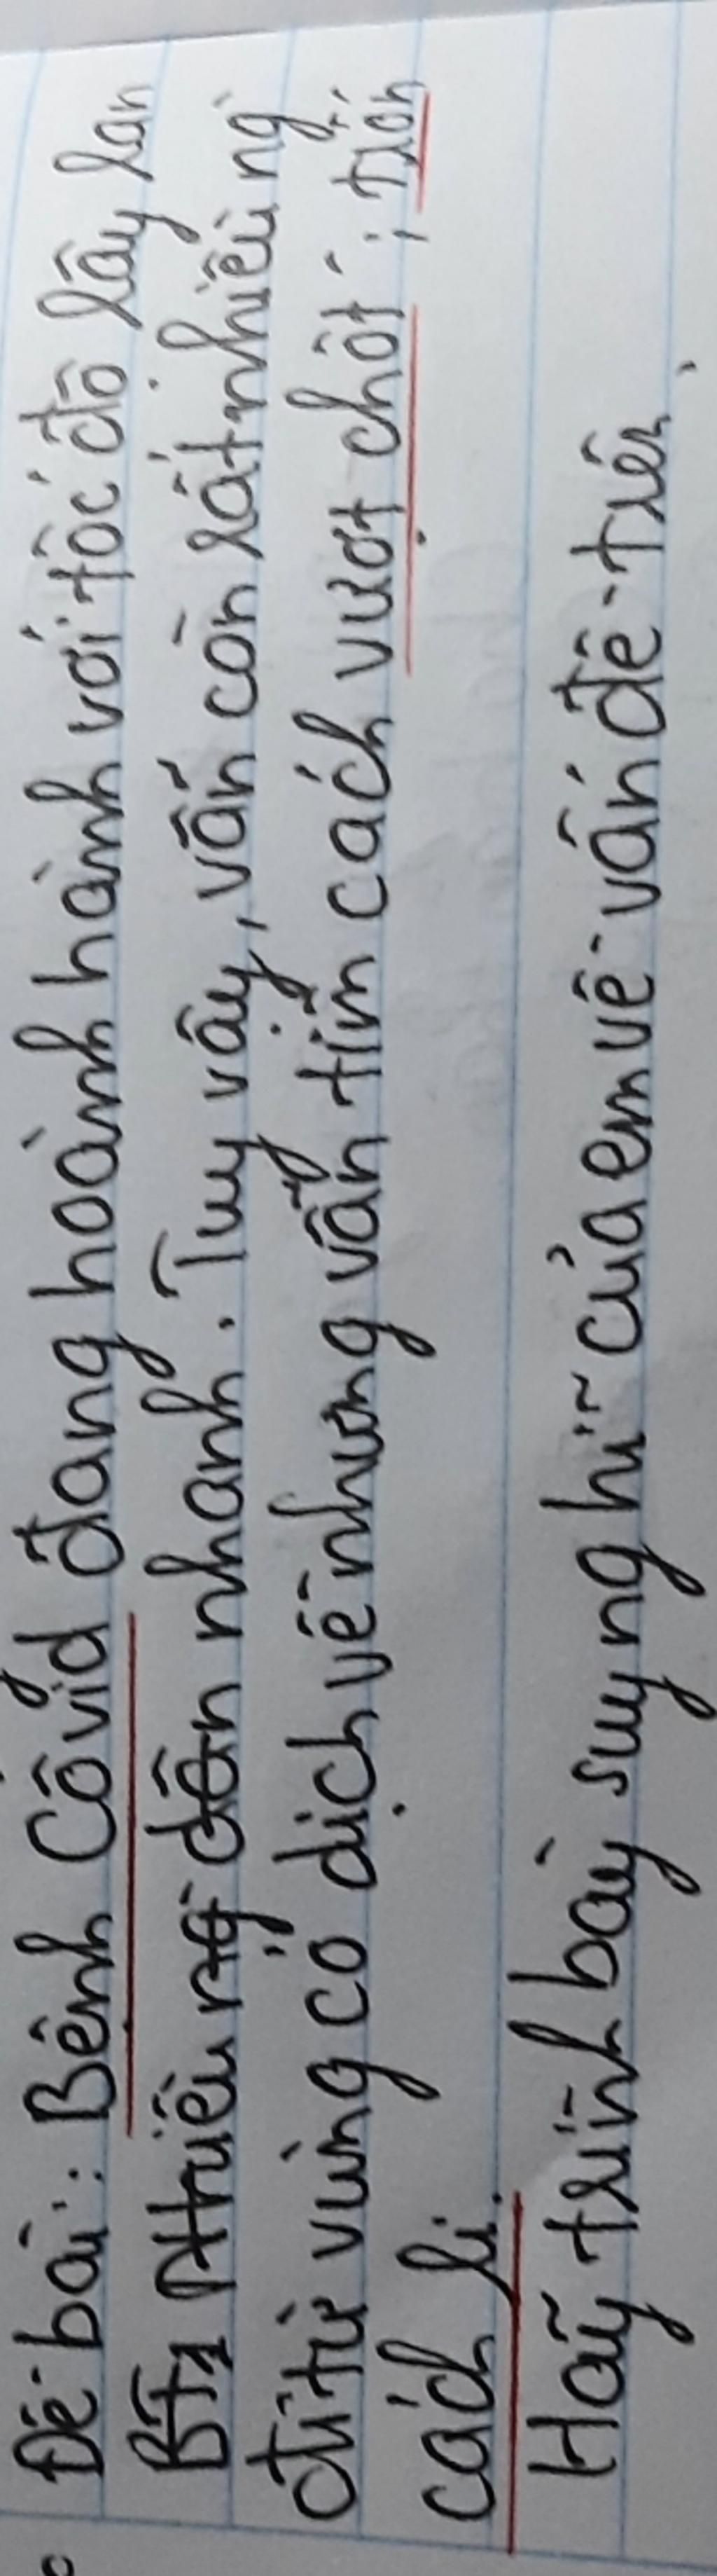 Đề bài: Bệnh Côvid đang hoành hành với tốc độ lây lan
nhanh. Tuy vậy, vẫn còn rất nhiều ng
đi từ vùng có dịch về nhưng vẫn tìm cách vượt chốt, trốn
cách li.
Hãy trình bày suy nghĩ của em về vấn đề trên.